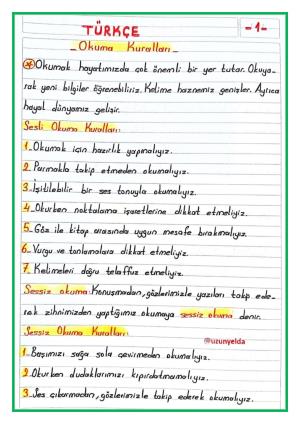 TÜRKÇE
-1-
-Okuma Kuralları-
Okumak hayatımızda çok önemli bir yer tutar. Okuya-
rak yeni bilgiler öğrenebiliriz. Kelime haznemiz genişler. Ayrıca
hayal dünyamız gelişir.
Sesli Okuma Kuralları:
1_Okumak için hazırlık yapmalıyız.
2_Parmakla takip etmeden okumalıyız.
3_İşitilebilir bir ses tonuyla okumalıyız.
4_Okurken noktalama işaretlerine dikkat etmeliyiz.
5_Göz ile kitap arasında uygun mesafe bırakmalıyız.
6_Vurgu ve tonlamalara dikkat etmeliyiz.
7_Kelimeleri doğru telaffuz etmeliyiz.
Sessiz okuma: Konuşmadan, gözlerimizle yazıları takip ede-
rek zihnimizden yaptığımız okumaya sessiz okuma denir.
Sessiz Okuma Kuralları:
@uzunyelda
1_Başımızı sağa sola çevirmeden okumalıyız.
2_Okurken dudaklarımızı kıpırdatmamalıyız.
3_Ses çıkarmadan, gözlerimizle takip ederek okumalıyız.